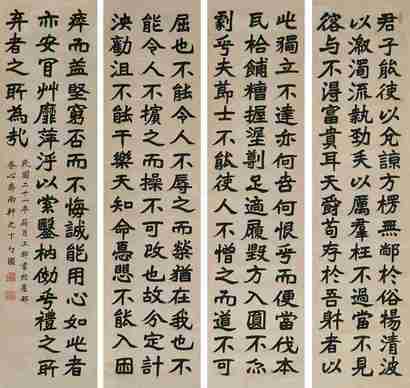 君子能使以亢諒方楞無於俗楊清波
以激濁流執勁矢以厲羣枉不過當不見
容与不得富貴耳天爵苟存於吾躬者以
此獨立不達亦何苦何恨乎而便當伐本
瓦餔糟握埿剿足適履毀方入圓不亦
劇乎夫節士不能使人不憎之而道不可
屈也不能令人不辱之而榮猶在我也不
能令人不擯之而操不可改也故分定計
決勸沮不能干樂天知命憂懼不能入困
瘁而益堅窮否而不悔誠能用心如此者
亦安肎艸靡萍浮以索鑿枘効乎禮之所
弃者之所為哉
民國二十一年荷月上澣書於